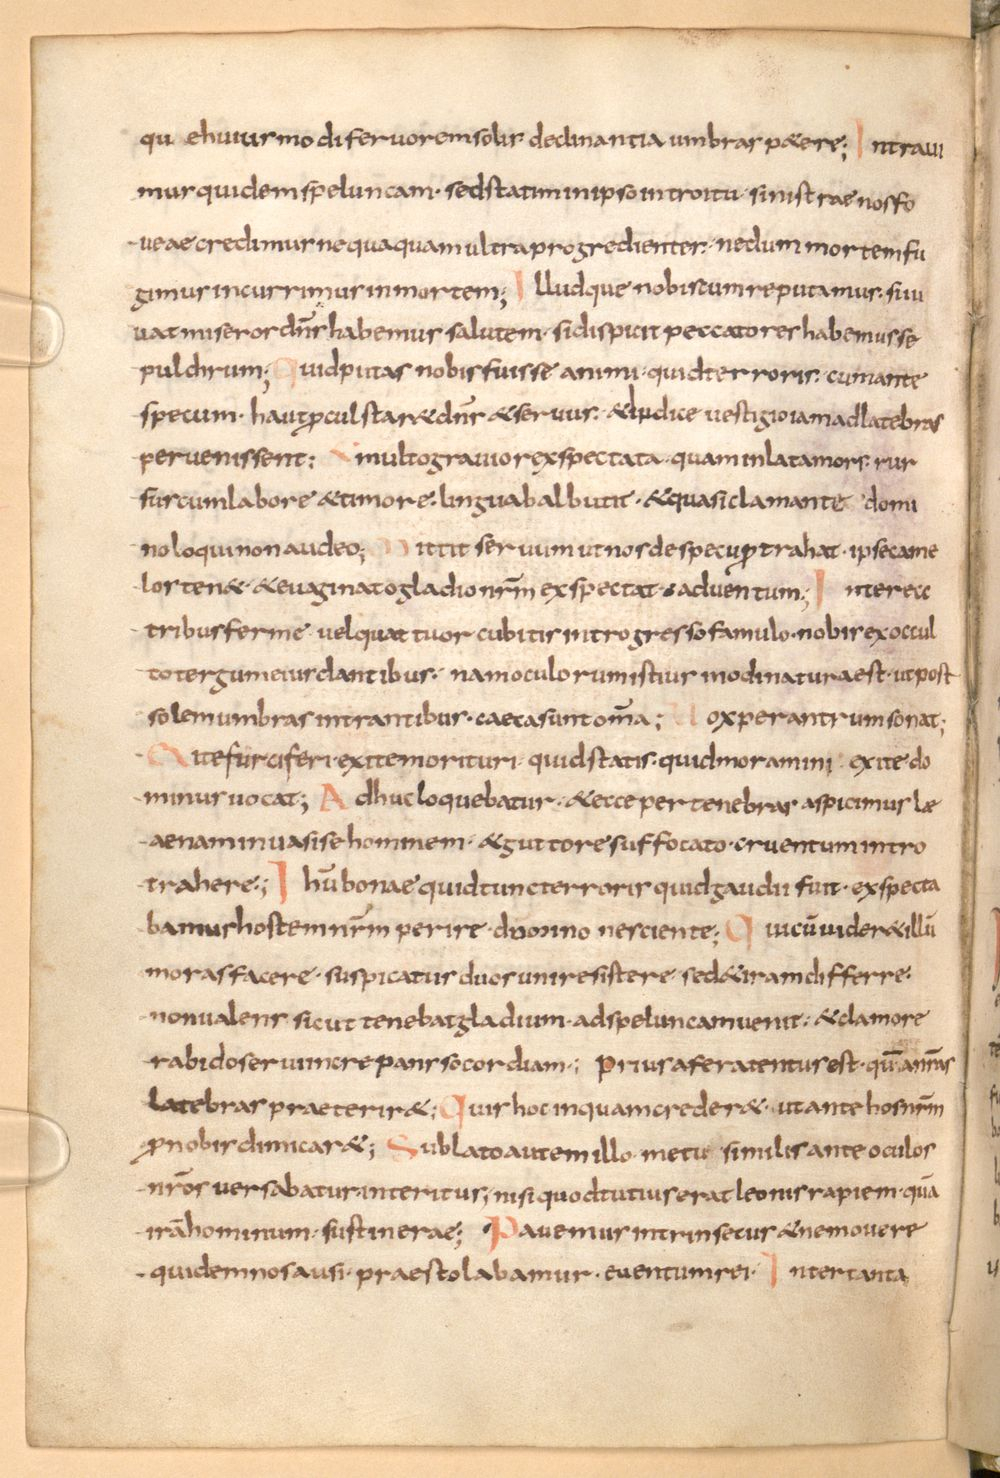 qu ehuiusmodi feruorem solis declinantia umbras p&ere; Intraui
mur quidem speluncam· sed statim in ipso introitu· sinistrae nos fo
ueae credimus nequaquam ultra progredientes· ne dum mortem fu
gimus incurrimus in mortem; Illudque nobiscum reputamus· si iu
uat miseros dn̄s habemus salutem· si dispicit peccatores habemus se
pulchrum; Quid putas nobis fuisse animi· quid terroris· cum ante
specum· haut ꝓcul star& dn̄s & seruus· & iudice uestigio iam ad latebras
peruenissent; multo grauior exspectata· quam inlata mors· rur
sus cum labore & timore· lingua balbutit· & quasi clamante domi
no loqui non audeo; Mittit seruum ut nos de specu ꝓtrahat· ipse came
los ten&· & euaginato gladio nr̄m exspectat· aduentum; Interea
tribus ferme uel quattuor cubitis introgresso famulo· nobis ex occul
to tergum eius clantibus· nam oculorum istius modi natura est· ut post
solem umbras intrantibus· caeca sunt om̄a; Uox per antrum sonat;
Exite furciferi· exite morituri· quid statis· quid moramini exite do
minus uocat; Adhuc loquebatur· & ecce per tenebras aspicimus le
aenam inuasise hominem· & gutture suffocato· cruentum intro
trahere; Ihū bonae quid tunc terroris quid gaudii fuit· exspecta
bamus hostem nr̄m perire· domino nesciente; Qui cū uider& illū
moras facere· suspicatus duos uni resistere sed & iram differre·
non ualens sicut tenebat gladium· ad speluncam uenit· & clamore
rabido serui increpans socordiam; Prius a fera tentus est· quā nr̄as
latebras praeterir&; Quis hoc inquam creder&· ut ante hos nr̄m
ꝓ nobis dimicar&; Sublato autem illo metu similis ante oculos
nr̄os uersabatur interitus; nisi quod tutius erat leonis rapiem· quā
irā hominum· sustinerae; Pauemus intrinsecus & ne mouere
quidem nos ausi· praestolabamur· euentum rei· Inter tanta